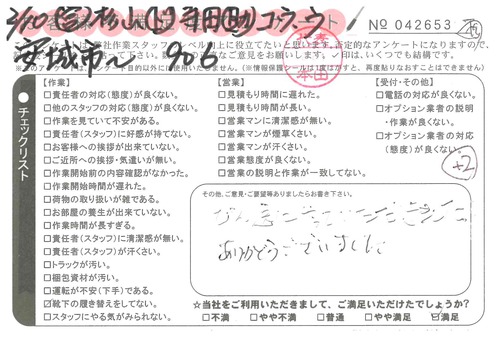 No 042653
※このアンケートは、アンケート目的以外には使用いたしません。(※情報保護シールは1度はがすと、再度貼りなおすことはできません)
チェックリスト
【作業】
□責任者の対応(態度)が良くない。
□他のスタッフの対応(態度)が良くない。
□作業を見ていて不安がある。
□責任者(スタッフ)に好感が持てない。
□お客様への挨拶が出来ていない。
□ご近所への挨拶・気遣いが無い。
□作業開始前の内容確認がなかった。
□作業開始時間が遅れた。
□荷物の取り扱いが雑である。
□お部屋の養生が出来ていない。
□作業時間が長すぎる。
□責任者(スタッフ)に清潔感が無い。
□責任者(スタッフ)が汗くさい。
□トラックが汚い。
□梱包資材が汚い。
□運転が不安(下手)である。
☑靴下の履き替えをしてない。
□スタッフにやる気がみられない。
【営業】
□見積もり時間に遅れた。
□見積もり時間が長い。
□営業マンに清潔感が無い。
□営業マンが煙草くさい。
□営業マンが汗くさい。
□営業態度が良くない。
□営業の説明と作業が一致してない。
【受付・その他】
□電話の対応が良くない。
□オプション業者の説明・作業が良くない。
□オプション業者の対応(態度)が良くない。
+2
その他、ご意見・ご要望等ありましたらお書き下さい。
ありがとうございました
☆当社をご利用いただきまして、ご満足いただけたでしょうか?
□不満 □やや不満 □普通 □やや満足 ☑満足